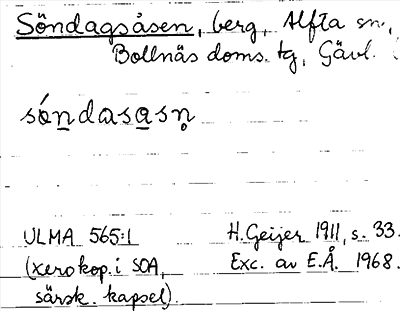 Söndagsåsen, berg, Alfta sn.,
Bollnäs doms. tg, Gävl. l.
sóṉdasa̲sn̥
ULMA 565:1
(xerokop. i SOA,
särsk. kapsel).
H. Geijer 1911, s. 33.
Exc. av E.Å. 1968.